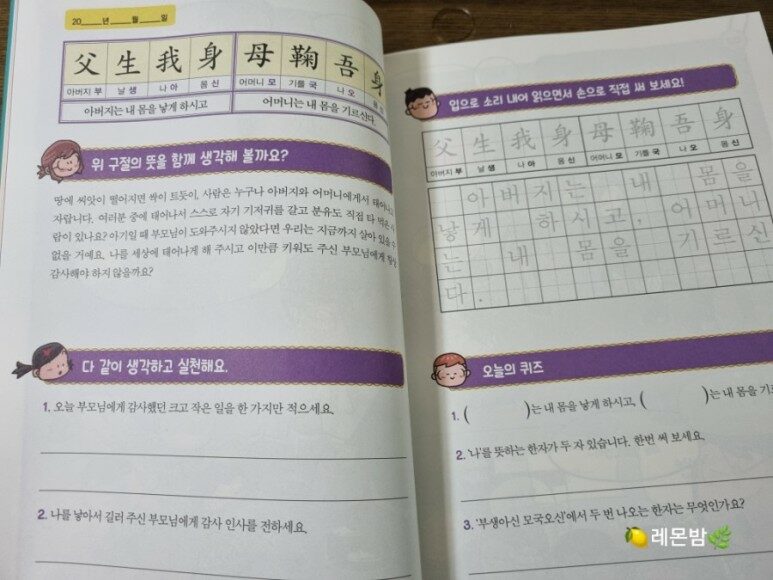 20 년 월 일
父 生 我 身 母 鞠 吾 身
아버지 부 날 생 나 아 몸 신 어머니 모 기를 국 나 오 몸 신
아버지는 내 몸을 낳게 하시고 어머니는 내 몸을 기르신다.
위 구절의 뜻을 함께 생각해 볼까요?
땅에 씨앗이 떨어지면 싹이 트듯이, 사람은 누구나 아버지와 어머니에게서 태어나고
자랍니다. 여러분 중에 태어나서 스스로 자기 기저귀를 갈고 분유도 직접 타 먹은 사
람이 있나요? 아기일 때 부모님이 도와주시지 않았다면 우리는 지금까지 살아 있을 수
없을 거예요. 나를 세상에 태어나게 해 주시고 이만큼 키워도 주신 부모님에게 항상
감사해야 하지 않을까요?
다 같이 생각하고 실천해요.
1. 오늘 부모님에게 감사했던 크고 작은 일을 한 가지만 적으세요.
2. 나를 낳아서 길러 주신 부모님에게 감사 인사를 전하세요.
입으로 소리 내어 읽으면서 손으로 직접 써 보세요!
父 生 我 身 母 鞠 吾 身
아버지 부 날 생 나 아 몸 신 어머니 모 기를 국 나 오 몸 신
아버지는 내 몸을
낳게 하시고, 어머니
는 내 몸을 기르신
다.
오늘의 퀴즈
1. ( )는 내 몸을 낳게 하시고, ( )는 내 몸을 기르
2. '나'를 뜻하는 한자가 두 자 있습니다. 한번 써 보세요.
3. '부생아신 모국오신'에서 두 번 나오는 한자는 무엇인가요?
레몬밤